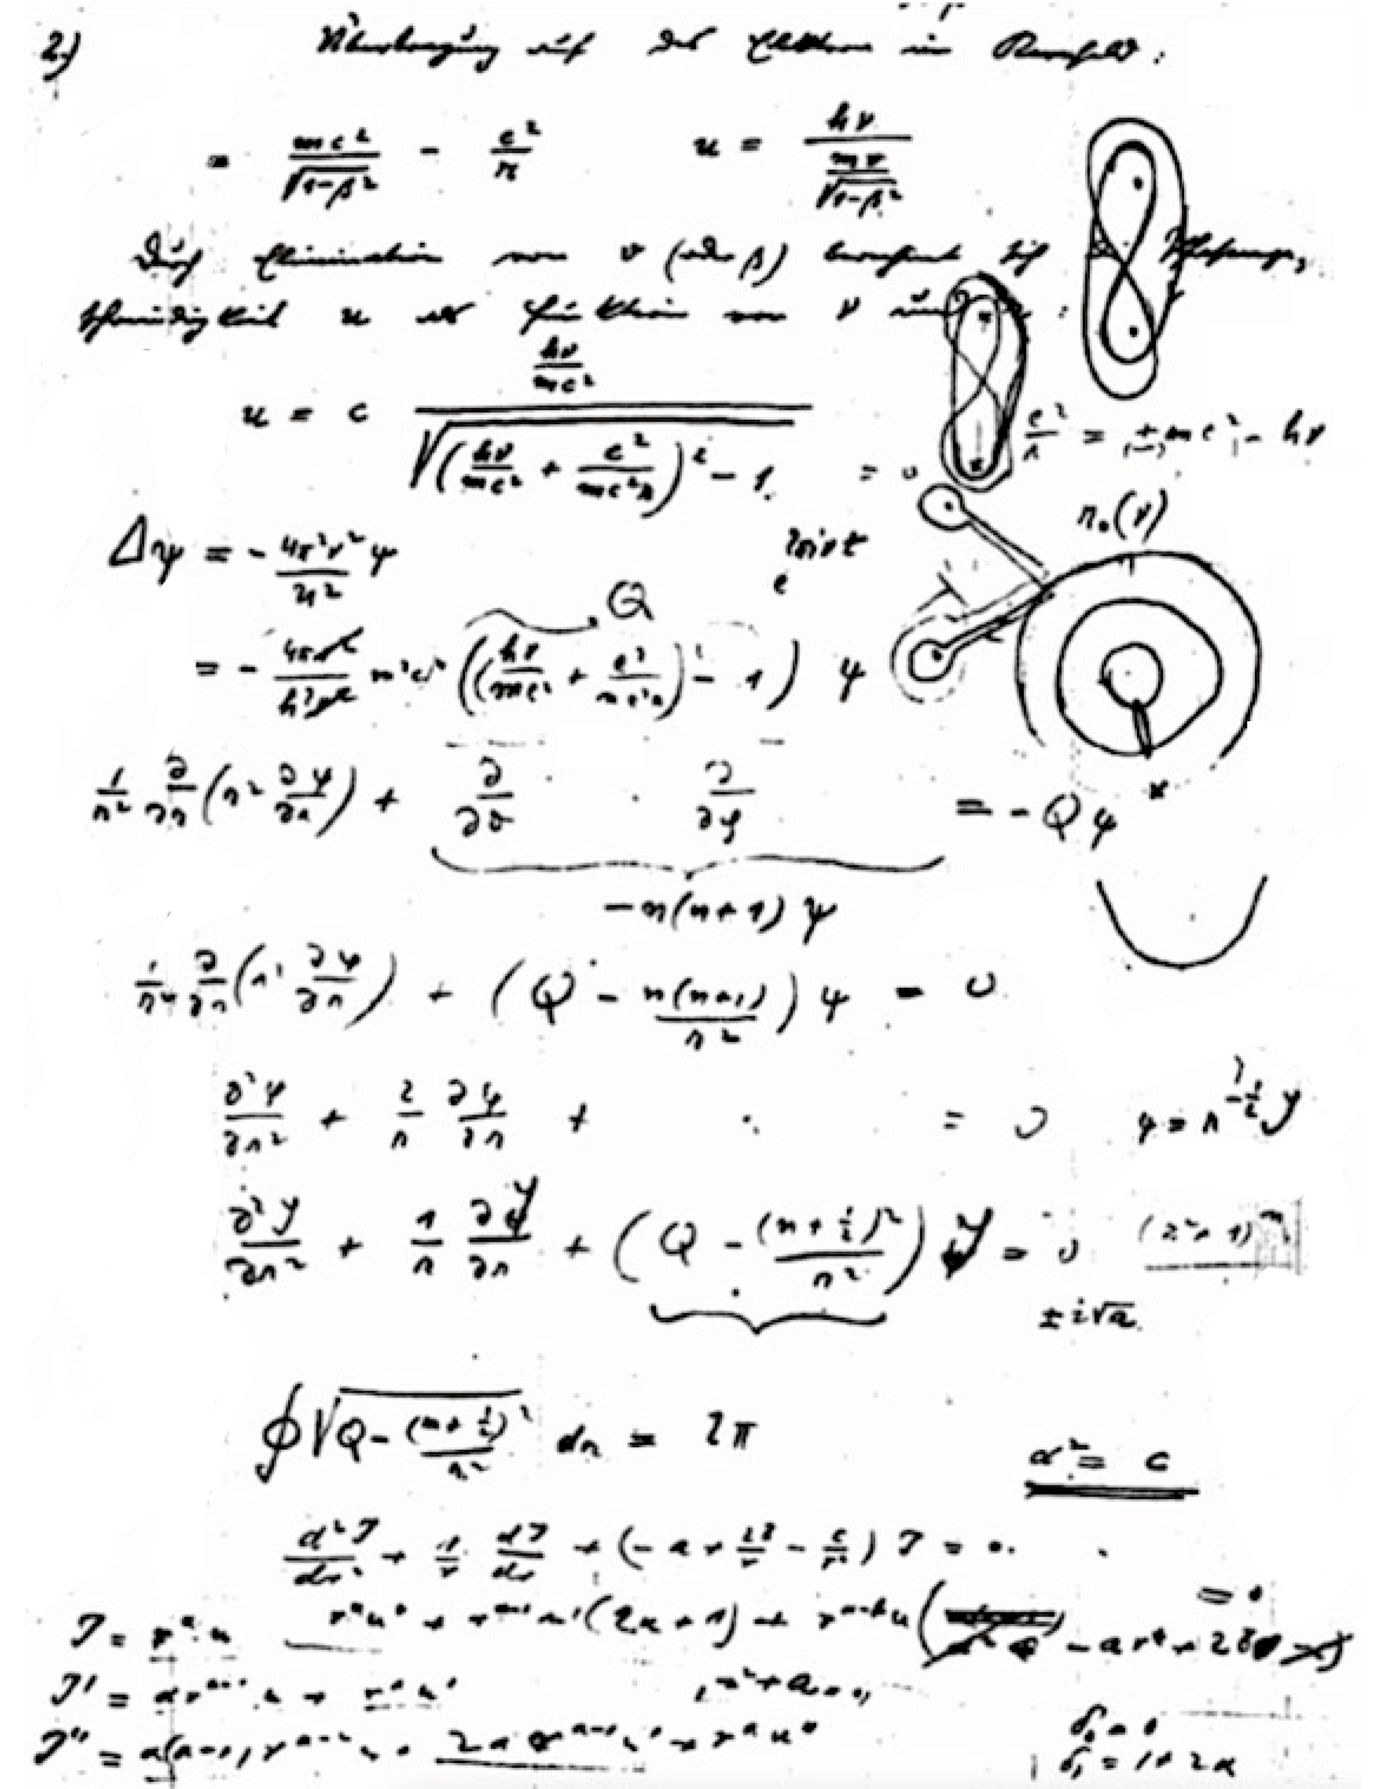 2.) Übertragung auf das Elektron im Kernfeld:
= mc²/√(1-β²) - e²/r    u = hν/(mv/√(1-β²))
Durch Elimination von v (oder β) berechnet sich die Phasenge,
schwindigkeit u als Funktion von ν und :
u = c (hν/mc²)/√((hν/mc² + e²/mc²r)² - 1)    = 0    e²/r = (+/-) mc² - hν
r₀(ν)
Δψ = - 4π²ν²/u² ψ    e^(2πiνt)
Q
= - 4π²ν²/h²ν² m²c² ((hν/mc² + e²/mc²r)² - 1) ψ
1/r² ∂/∂r (r² ∂ψ/∂r) + ∂/∂ϑ · ∂/∂φ = - Qψ
-n(n+1) ψ
1/r² ∂/∂r (r² ∂ψ/∂r) + (Q - n(n+1)/r²) ψ = 0
∂²ψ/∂r² + 2/r ∂ψ/∂r + · = 0    ψ = r^(-1/2) y
∂²y/∂r² + 1/r ∂y/∂r + (Q - (n+½)²/r²) y = 0
± i√a
∮ √(Q - (n+½)²/r²) dr = 2π
α² = c
d²J/dr² + 1/r dJ/dr + (-a + 2b/r - c/r²) J = 0.
= 0
J = r^α u    r^α u'' + r^(α-1) u' (2α+1) + r^(α-2) u ( - ar² + 2br )
J' = αr^(α-1) u + r^α u'
J'' = α(α-1) r^(α-2) u + 2α r^(α-1) u' + r^α u''
δ₀ = 0
δ₁ = 1+2α